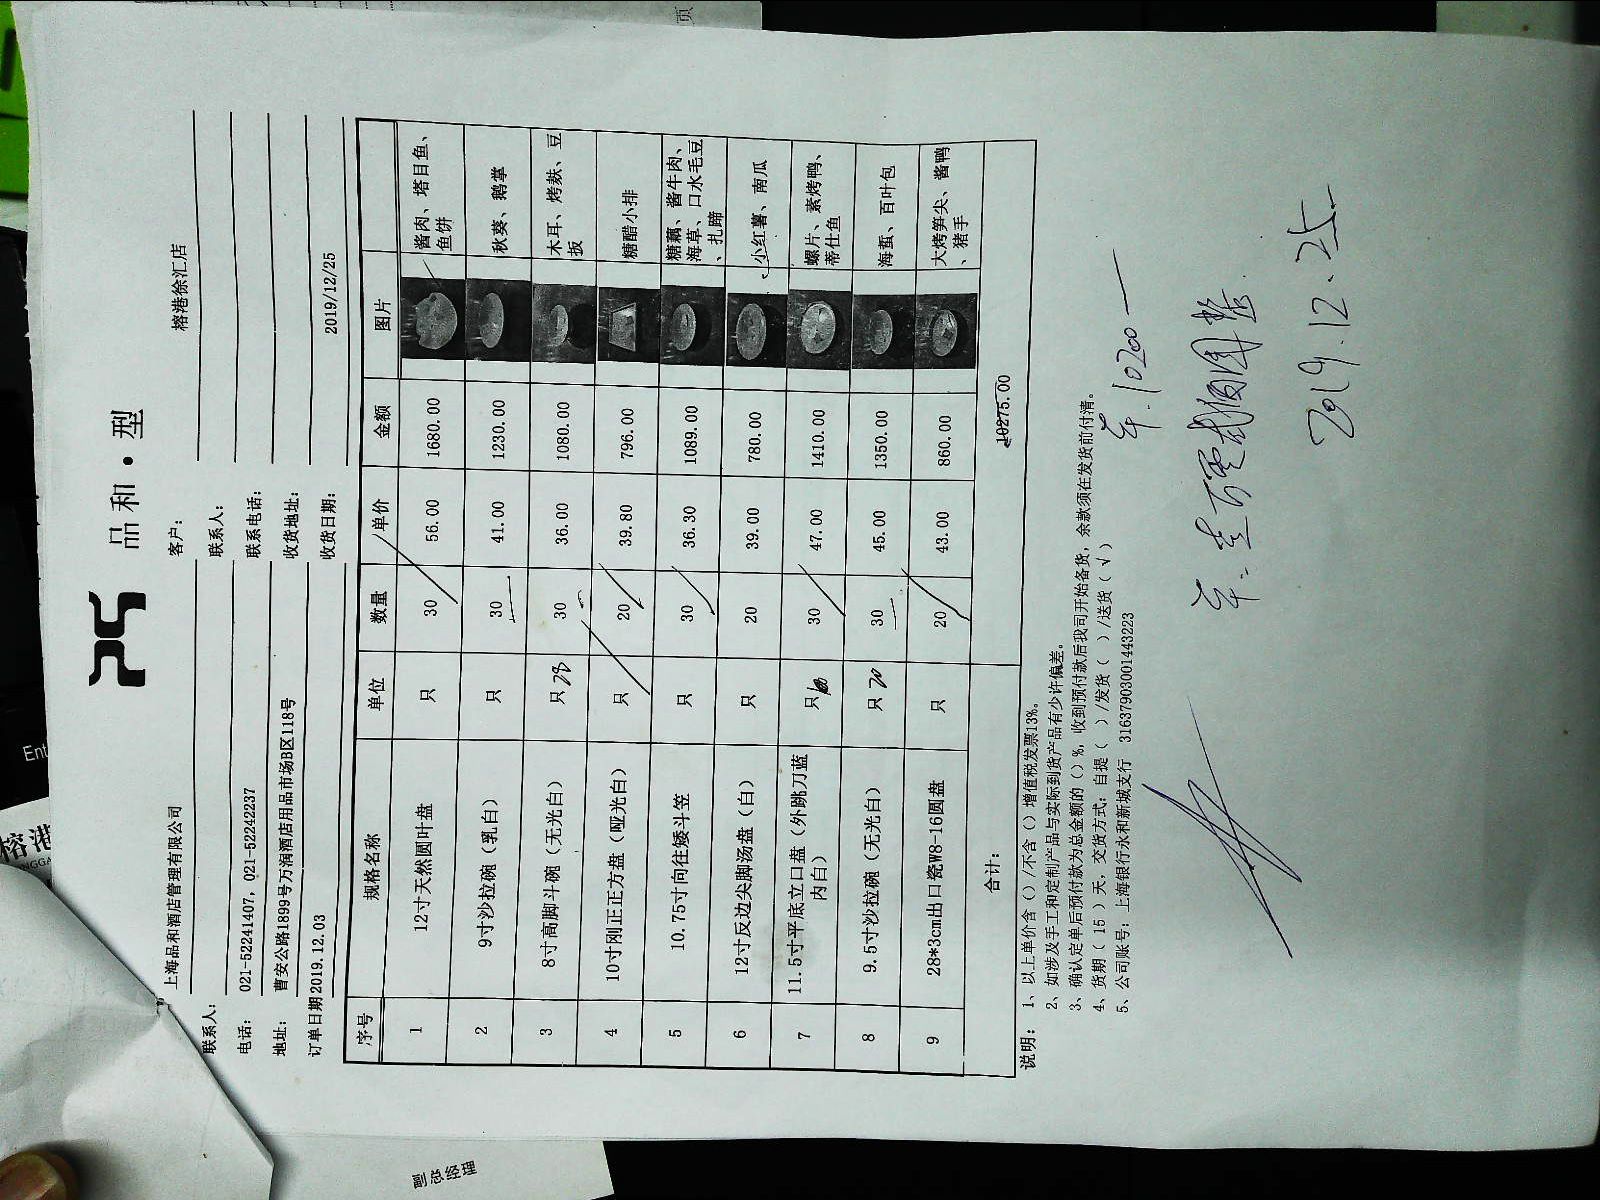 品和·型
上海品和酒店管理有限公司 客户： 榕港徐汇店
联系人： 联系人：
电话： 021-52241407，021-52242237 联系电话：
地址： 曹安公路1899号万润酒店用品市场B区118号 收货地址：
订单日期 2019.12.03 收货日期： 2019/12/25
序号 规格名称 单位 数量 单价 金额 图片
1 12寸天然圆叶盘 只 30 56.00 1680.00 酱肉、塔目鱼、
鱼饼
2 9寸沙拉碗（乳白） 只 30 41.00 1230.00 秋葵、鹅掌
3 8寸高脚斗碗（无光白） 只 30 36.00 1080.00 木耳、烤麸、豆
扳
4 10寸刚正正方盘（哑光白） 只 20 39.80 796.00 糖醋小排
5 10.75寸向往矮斗笠 只 30 36.30 1089.00 糖藕、酱牛肉、
海草、口水毛豆
、扎蹄
6 12寸反边尖脚汤盘（白） 只 20 39.00 780.00 小红薯、南瓜
7 11.5寸平底立口盘（外跳刀蓝 只 30 47.00 1410.00 螺片、素烤鸭、
内白） 蒂仕鱼
8 9.5寸沙拉碗（无光白） 只 30 45.00 1350.00 海蜇、百叶包
9 28*3cm出口瓷W8-16圆盘 只 20 43.00 860.00 大烤笋尖、酱鸭
、猪手
合计： 10275.00
说明： 1、以上单价含（）/不含（）增值税发票13%。
2、如涉及手工和定制产品与实际到货产品有少许偏差。
3、确认定单后预付款为总金额的（）%，收到预付款后我司开始备货，余款须在发货前付清。
4、货期（ 15 ）天，交货方式：自提（ ）/发货（ ）/送货（ √ ）
5、公司账号：上海银行永和新城支行 31637903001443223
10200
2019.12.25
副总经理